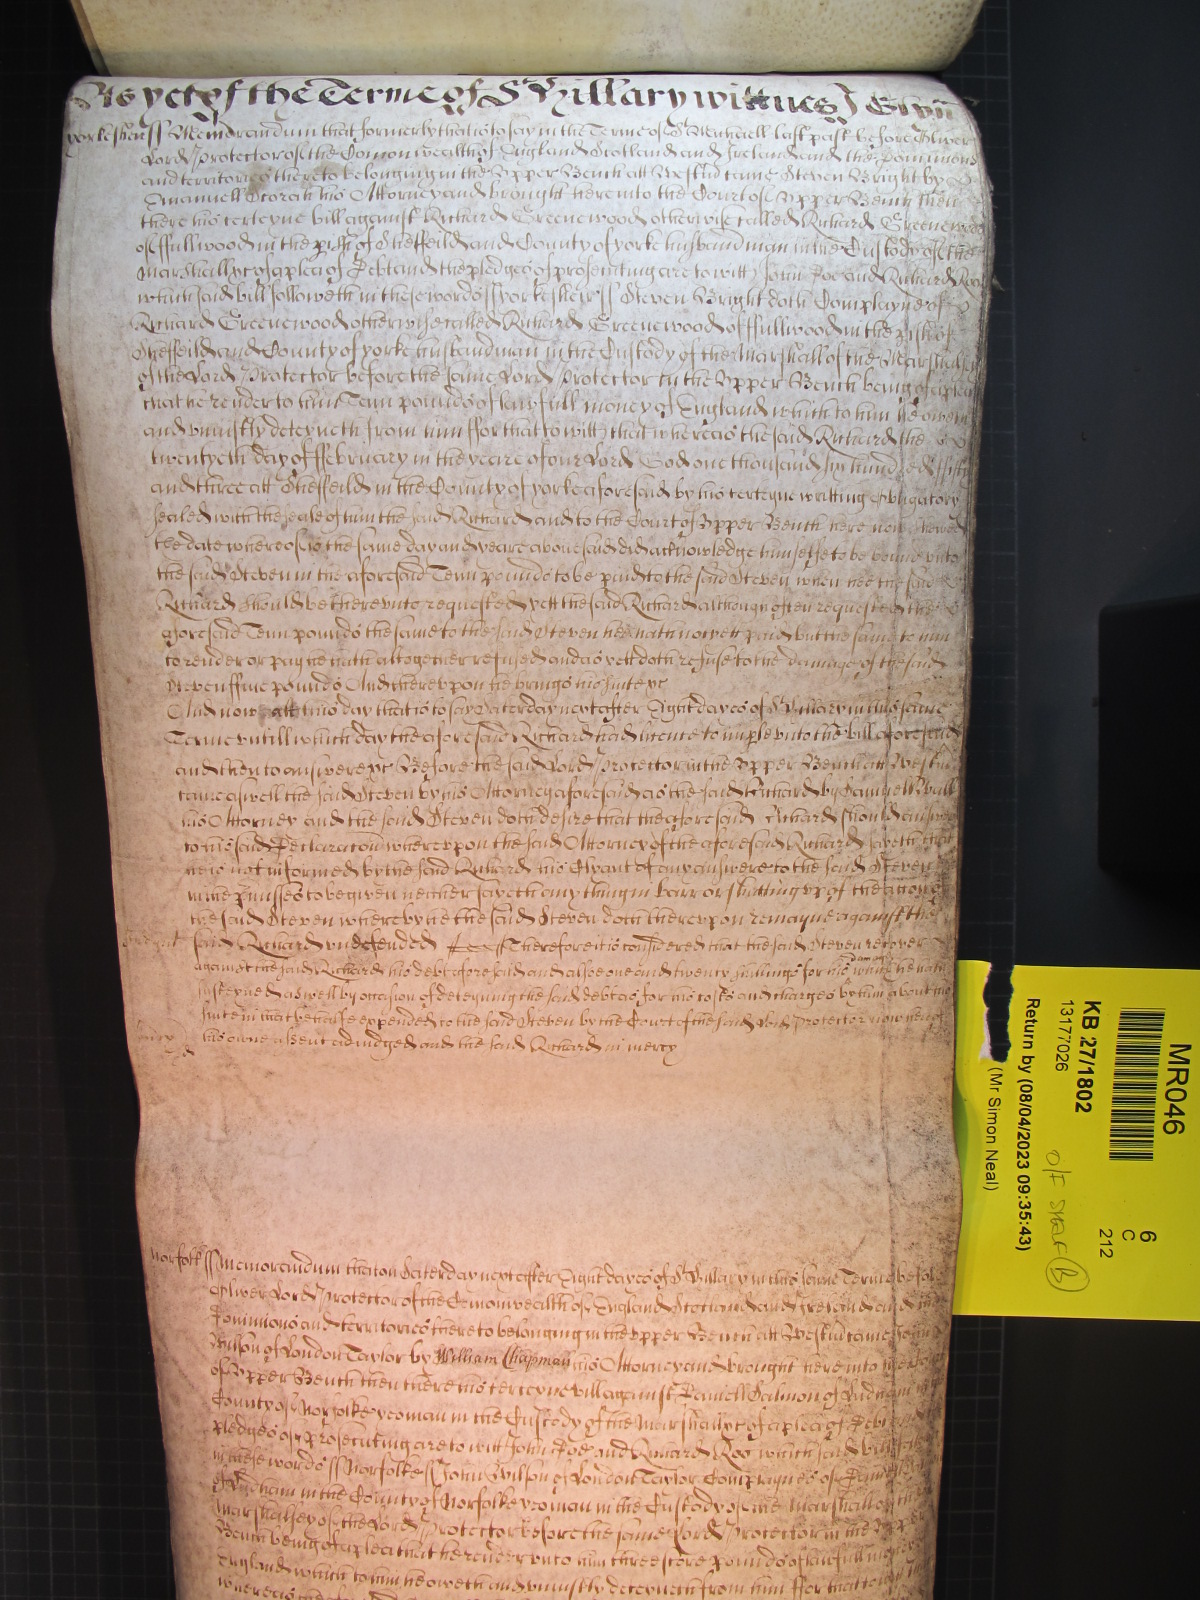 As yet of the Terme of St Hillary wittnes J Glynn
yorkesheir ss Memorandum that formerly that is to say in the Terme of St Michaell last past before Oliver
Lord Protector of the Comonwealth of England Scotland and Ireland and the Dominions
and territories thereto belonging in the Upper Bench att Westm came Steven Bright by
Emanuell his Attorney and brought here into the Court of Upper Bench then
there his certeyne bill against Richard Greenewood otherwise called Richard Greenewood
of ffullwood in the pish of Sheffeild and County of yorke husbandman in the Custody of the
Marshall &c of a plea of Debt and the pledges of prosecuting are to witt John Doe and Richard Roo
which said bill followeth in these words ss yorkesheir ss Steven Bright doth Complayne of
Richard Greenewood otherwise called Richard Greenewood of ffullwood in the pish of
Sheffeild and County of yorke husbandman in the Custody of the Marshall of the Marshalsey
of the Lord Protector before the same Lord Protector in the Upper Bench being of a plea
that he render to him Tenn pounds of lawfull money of England which to him he oweth
and uniustly deteyneth from him ffor that to witt that whereas the said Richard the
twentyeth day of ffebruary in the yeare of our Lord God one thousand six hundred fifty
and three att Sheffeild in the County of yorke aforesaid by his certeyne writting obligatory
sealed with the seale of him the said Richard and to the Court of Upper Bench here now shewed
the date whereof is the same day and yeare abovesaid did acknowledge himselfe to be bound unto
the said Steven in the aforesaid Tenn pounds to be paid to the said Steven when hee the said
Richard should be thereunto requested yett the said Richard although often requested the
aforesaid Tenn pounds the same to the said Steven he hath not yett paid but the same to him
to render or pay he hath altogether refused and as yett doth refuse to the damage of the said
Steven ffive pounds And thereupon he brings his suite &c
And now att this day that is to say Saterday next after Eight dayes of St Hillary in this same
Terme untill which day the aforesaid Richard had licence to imple unto the bill aforesaid
and then to answere &c Before the said Lord Protector in the Upper Bench att Westm
came aswell the said Steven by his Attorney aforesaid as the said Richard by Samuell
his Attorney and the said Steven doth desire that the aforesaid Richard should answere
to his said Declaration whereupon the said Attorney of the aforesaid Richard sayeth that
he is not informed by the said Richard his Clyant of any answere to the said Steven
in the pmisses to be given neither sayeth any thing in barr or shutting up of the action of
the said Steven whereby he the said Steven doth thereupon remayne against the
said Richard undefended Therefore it is considered that the said Steven recover
against the said Richard his debt aforesaid and alsoe one and twenty shillings for his damages which he hath
susteyned aswell by occasion of deteyning the said debt as for his costs and charges by him about his
suite in that behalfe expended to the said Steven by the Court of the said Lord Protector now here of
his owne assent adiudged and the said Richard in mercy
norfolk ss Memorandum that on Saterday next after Eight dayes of St Hillary in this same Terme before
Oliver Lord Protector of the Comonwealth of England Scotland and Ireland and the
Dominions and territories thereto belonging in the Upper Bench att Westm came John
Wilson of London Taylor by William Chapman his Attorney and brought here into the Court
of Upper Bench then there his certeyne bill against Daniell Salmon of
County of Norfolke yeoman in the Custody of the Marshall &c of a plea of Debt
pledges of prosecuting are to witt John Doe and Richard Roo which said bill
in these words ss Norfolke ss John Wilson of London Taylor Complaynes of Daniell
in the County of Norfolke yeoman in the Custody of the Marshall of the
Marshalsey of the Lord Protector before the same Lord Protector in the Upper
Bench being of a plea that he render unto him three score pounds of lawfull money of
England which to him he oweth and uniustly deteyneth from him ffor that to witt
whereas
MR046
6
C
212
KB 27/1802
13177026
O/F SHELF B
Return by (08/04/2023 09:35:43)
(Mr Simon Neal)